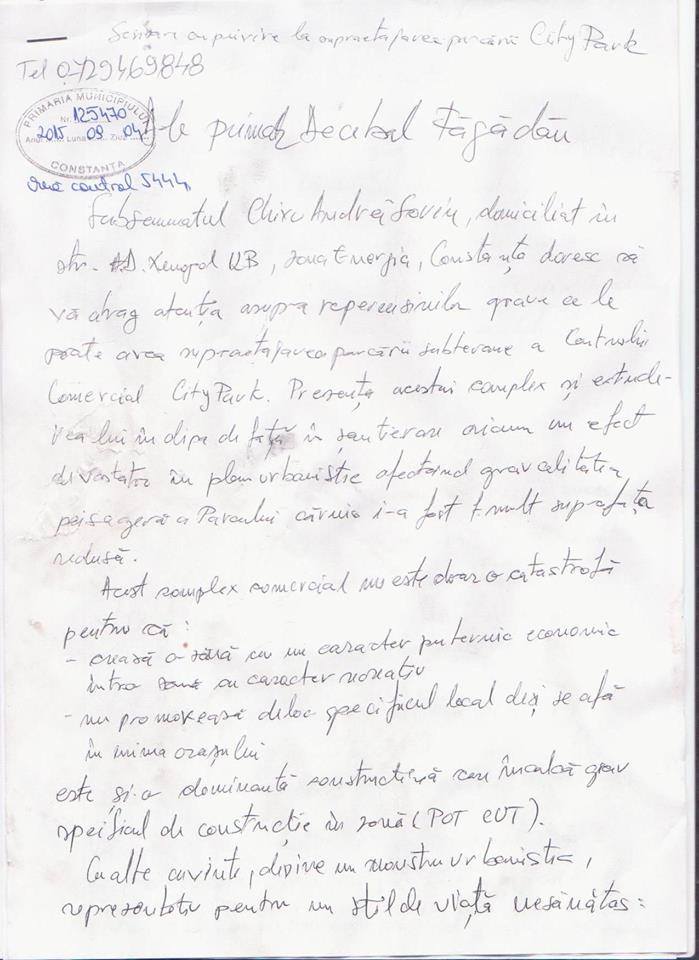 Scrisoare cu privire la supraetajarea parcării City Park
Tel 0729469848
PRIMARIA MUNICIPIULUI
Nr. 125470
Anul 2015 Luna 09 Ziua 04
CONSTANTA
control 5444
D-le primar Decebal Făgădău
Subsemnatul Chiru Andrei Sorin, domiciliat în
str. A.D. Xenopol 12B, zona Energia, Constanța doresc să
vă atrag atenția asupra repercusiunilor grave ce le
poate avea supraetajarea parcării subterane a Centrului
Comercial City Park. Prezența acestui complex și extinde-
rea lui în clipa de față în șantierare au un efect
devastator în plan urbanistic afectând grav calitatea
peisageră a Parcului căruia i-a fost f. mult suprafața
redusă.
Acest complex comercial nu este doar o catastrofă
pentru că:
- crează o zonă cu un caracter puternic economic
într-o zonă cu caracter recreativ
- nu promovează deloc specificul local deși se află
în inima orașului
este și o dominantă construcție care încalcă grav
speificul de construcție în zonă (POT CUT).
Cu alte cuvinte, devine un monstru urbanistic,
reprezentativ pentru un stil de viață nesănătos: